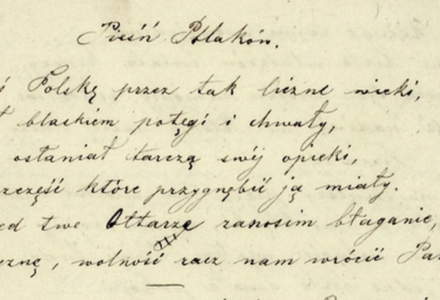 Pieśń Polaków.
Polskę przez tak liczne wieki,
blaskiem potęgi i chwały,
osłaniał tarczą swéj opieki,
które przygnębić ją miały.
twe Ołtarze zanosim błaganie,
wolność racz nam wrócić